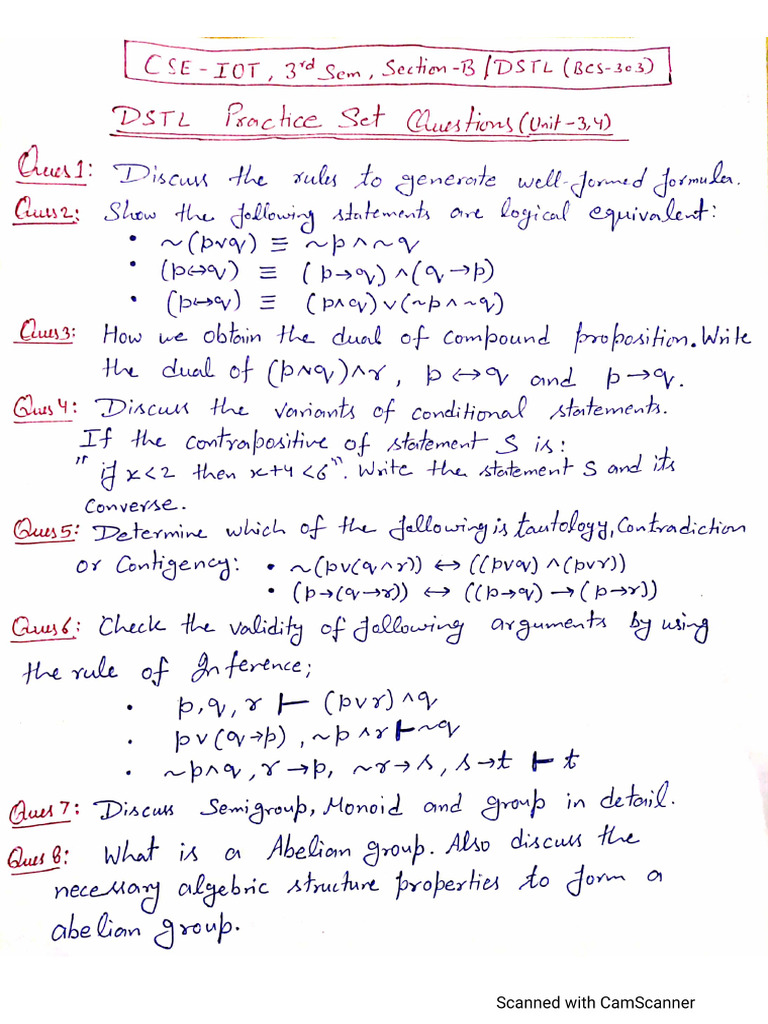 CSE-IOT, 3rd Sem, Section-B/DSTL (BCS-303)
DSTL Practice Set Questions (Unit-3,4)
Ques1: Discuss the rules to generate well-formed formula.
Ques2: Show the following statements are logical equivalent:
• ~(p∨q) ≡ ~p∧~q
• (p↔q) ≡ (p→q)∧(q→p)
• (p↔q) ≡ (p∧q)∨(~p∧~q)
Ques3: How we obtain the dual of compound proposition. Write
the dual of (p∧q)∧r, p↔q and p→q.
Ques4: Discuss the variants of conditional statements.
If the contrapositive of statement S is:
"if x<2 then x+4<6". Write the statement S and its
converse.
Ques5: Determine which of the following is tautology, Contradiction
or Contigency: • ~(p∨(q∧r)) ↔ ((p∨q)∧(p∨r))
• (p→(q→r)) ↔ ((p→q)→(p→r))
Ques6: Check the validity of following arguments by using
the rule of Inference;
• p,q,r ⊢ (p∨r)∧q
• p∨(q→p), ~p∧r ⊢ ~q
• ~p∧q, r→p, ~r→s, s→t ⊢ t
Ques7: Discuss Semigroup, Monoid and group in detail.
Ques8: What is a Abelian group. Also discuss the
necessary algebric structure properties to form a
abelian group.
Scanned with CamScanner